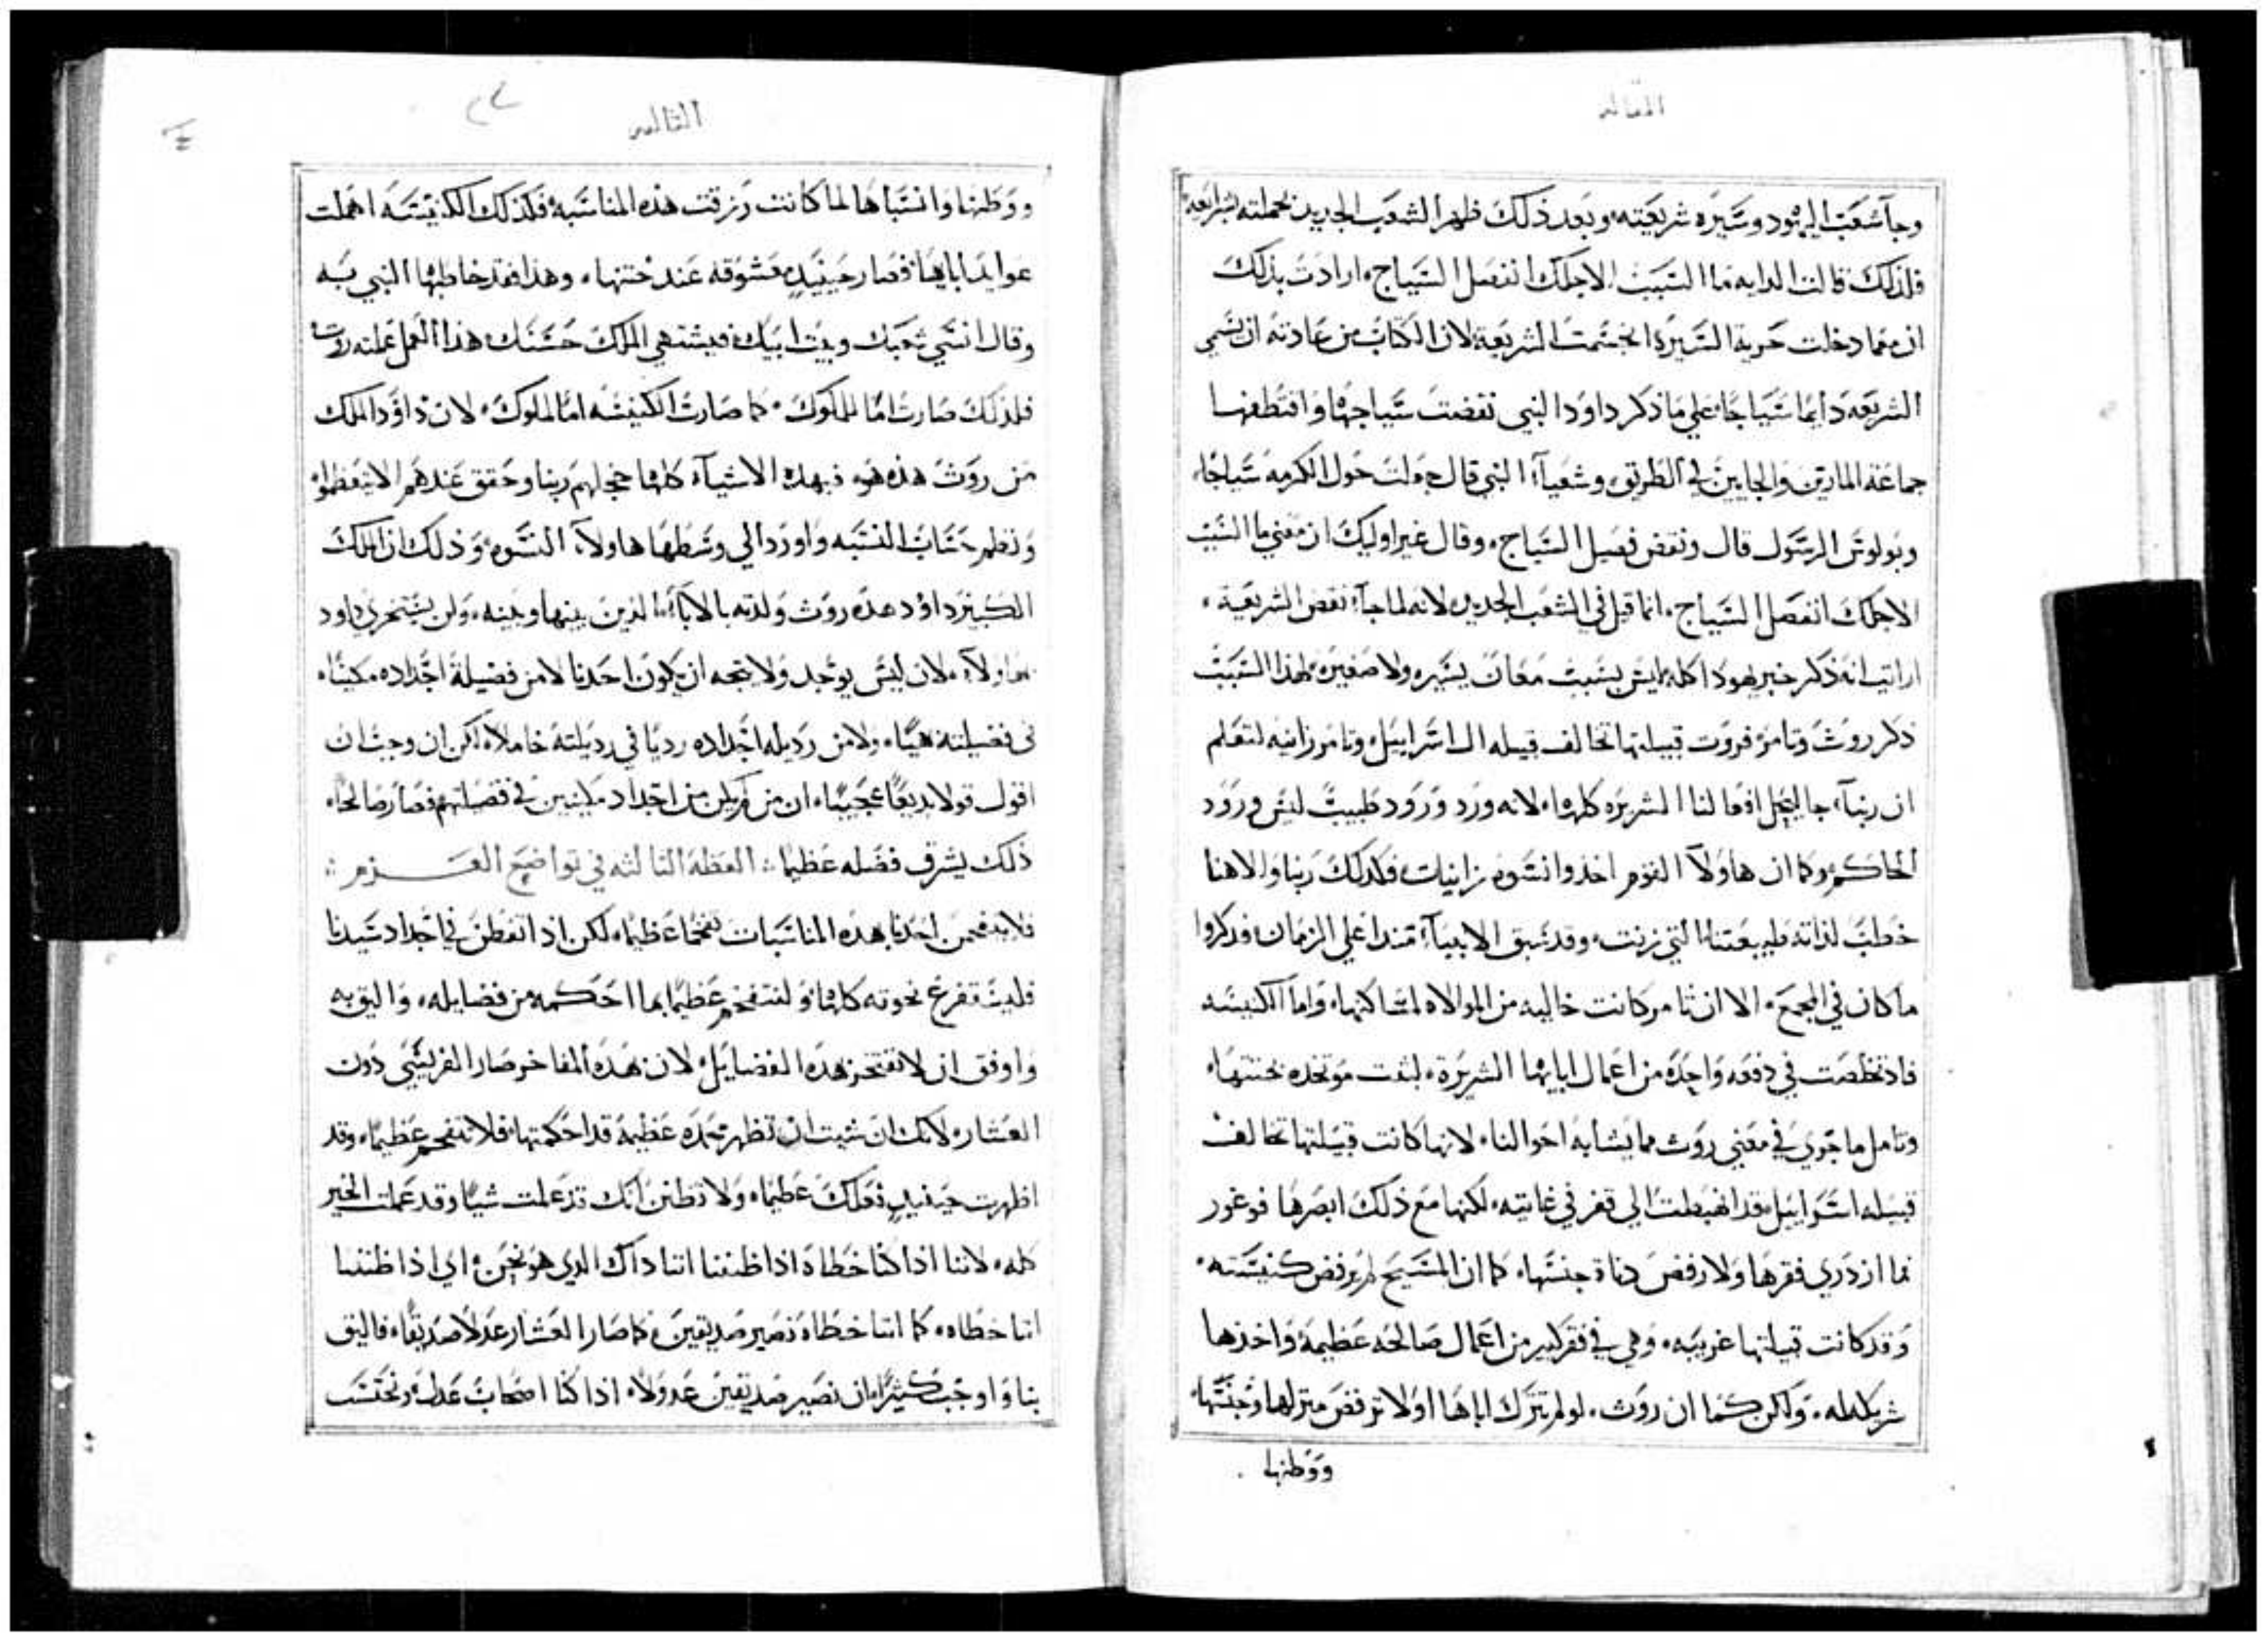 المقاله
وجا شعب اليهود وسيره شريعته وبعد ذلك ظهر الشعب الجديد بحملته بشرايعه
فلذلك قالت الدايه ما السبب لاجلك انفصل السياج ارادت بذلك
ان معما دخلت حرية السيرة انحسمت الشريعة لان الكتاب من عادته ان يسمي
الشريعه دايما سياجا علي ما ذكر داود النبي نقضت سياجها واقتطفها
جماعة المارين والجايين في الطريق وشعيا النبي قال جولت حول الكرمه سياجا
وبولوس الرسول قال ونقض فصل السياج وقال غير اوليك ان معني ما السبب
لاجلك انفصل السياج انما قيل في الشعب الجديد لانه لما جا نقض الشريعة
اراتيت انه ذكر خبر يهودا كله ليس بسبب معان يسيره ولا صغيره لهذا السبب
ذكر روث وتامر فروت قبيلتها تخالف قبيله ال اسراييل وتامر زانيه لتعلم
ان ربنا جا ليحل افعالنا الشريره كلها لانه ورد ورود طبيب ليس ورود
الحاكم وكما ان هاولا القوم اخذوا نسوه زانيات فكذلك ربنا والاهنا
خطب لذاته طبيعتنا التي زنت وقد سبق الانبيا منذ اعلي الزمان وذكروا
ما كان في المجمع الا ان تامر كانت خاليه من الموالاه لمساكنها واما الكنيسه
فاذ تخلصت في دفعه واحده من اعمال ابايها الشريرة لبثت موتخده بختنها
وتامل ما جري في معني روث مما يشابه احوالنا لانها كانت قبيلتها تخالف
قبيله اسراييل وقد انهبطت الي فقر في غايته لكنها مع ذلك ابصرها فوغور
فما ازدري فقرها ولا رفض دناة جنسها كما ان المسيح لم يرفض كنيسته
وقد كانت قبيلتها غريبه وهي في فقر كبير من اعمال صالحه عظيمة واخذها
شريكه له ولكن كما ان روث لو لم تترك اباها اولا ترفض منزلها وجنسها
ووطنها
الثالثه
ووطنها وانسباها لما كانت رزقت هذه المناسبه فكذلك الكنيسه اهملت
عوايد ابايها فصار حينيد معشوقه عند ختنها وهذا فقد خاطبها النبي به
وقال انسي شعبك وبيت ابيك فيشتهي الملك حسنك هذا العمل عملته روث
فلذلك صارت اما للملوك كما صارت الكنيسه اما لملوك لان داود الملك
من روث هذه هو فبهذه الاشيا كلها خجلهم ربنا وحقق عندهم الا يتعظموا
ونظم حساب النسبه واورد الي وسطها هاولا النسوه وذلك ان الملك
الكبير داود هذه روث ولدته بالابا الذين بينها وبينه ولن يستخزي داود
بهاولا لان ليس يوجد ولا يتجه ان يكون احدنا لا من فضيلة اجداده مكينا
في فضيلته هيا ولا من رذيله اجداده رديا في رديلته خاملا لكن ان وجب ان
اقول قولا بديعا عجيبا ان من لم يكن من اجداد مكينين في فضيلتهم فصار صالحا
ذلك يشرف فضله عظيما العظة الثالثه في تواضع العـــزم
فلا يتفخمن احدنا بهذه المناسبات تفخما عظيما لكن اذ اتفطن في اجداد سيدنا
فليستفرغ نخوته كلها ولنتفخم عظيما بما احكمه من فضايله واليق به
واوفق ان لا نفتخر بهذه الفضايل لان هذه المفاخر صار الفريسي دون
العشار لانك ان شيت ان تظهر عمده عظيمة قد احكمتها فلا تتفخم عظيما وقد
اظهرت حينيد فعلك عظيما ولا تظنن انك قد عملت شيا وقد عملت الخير
كله لاننا اذا كنا خطاة اذا ظننا اننا ذاك الذي هو نحن اي اذا ظننا
اننا خطاه كما اننا خطاة نصير صديقين كما صار العشار عدلا صديقا فاليق
بنا واوجب كثيرا ان نصير صديقين عدولا اذا كنا اصحاب عدل ونحتسب